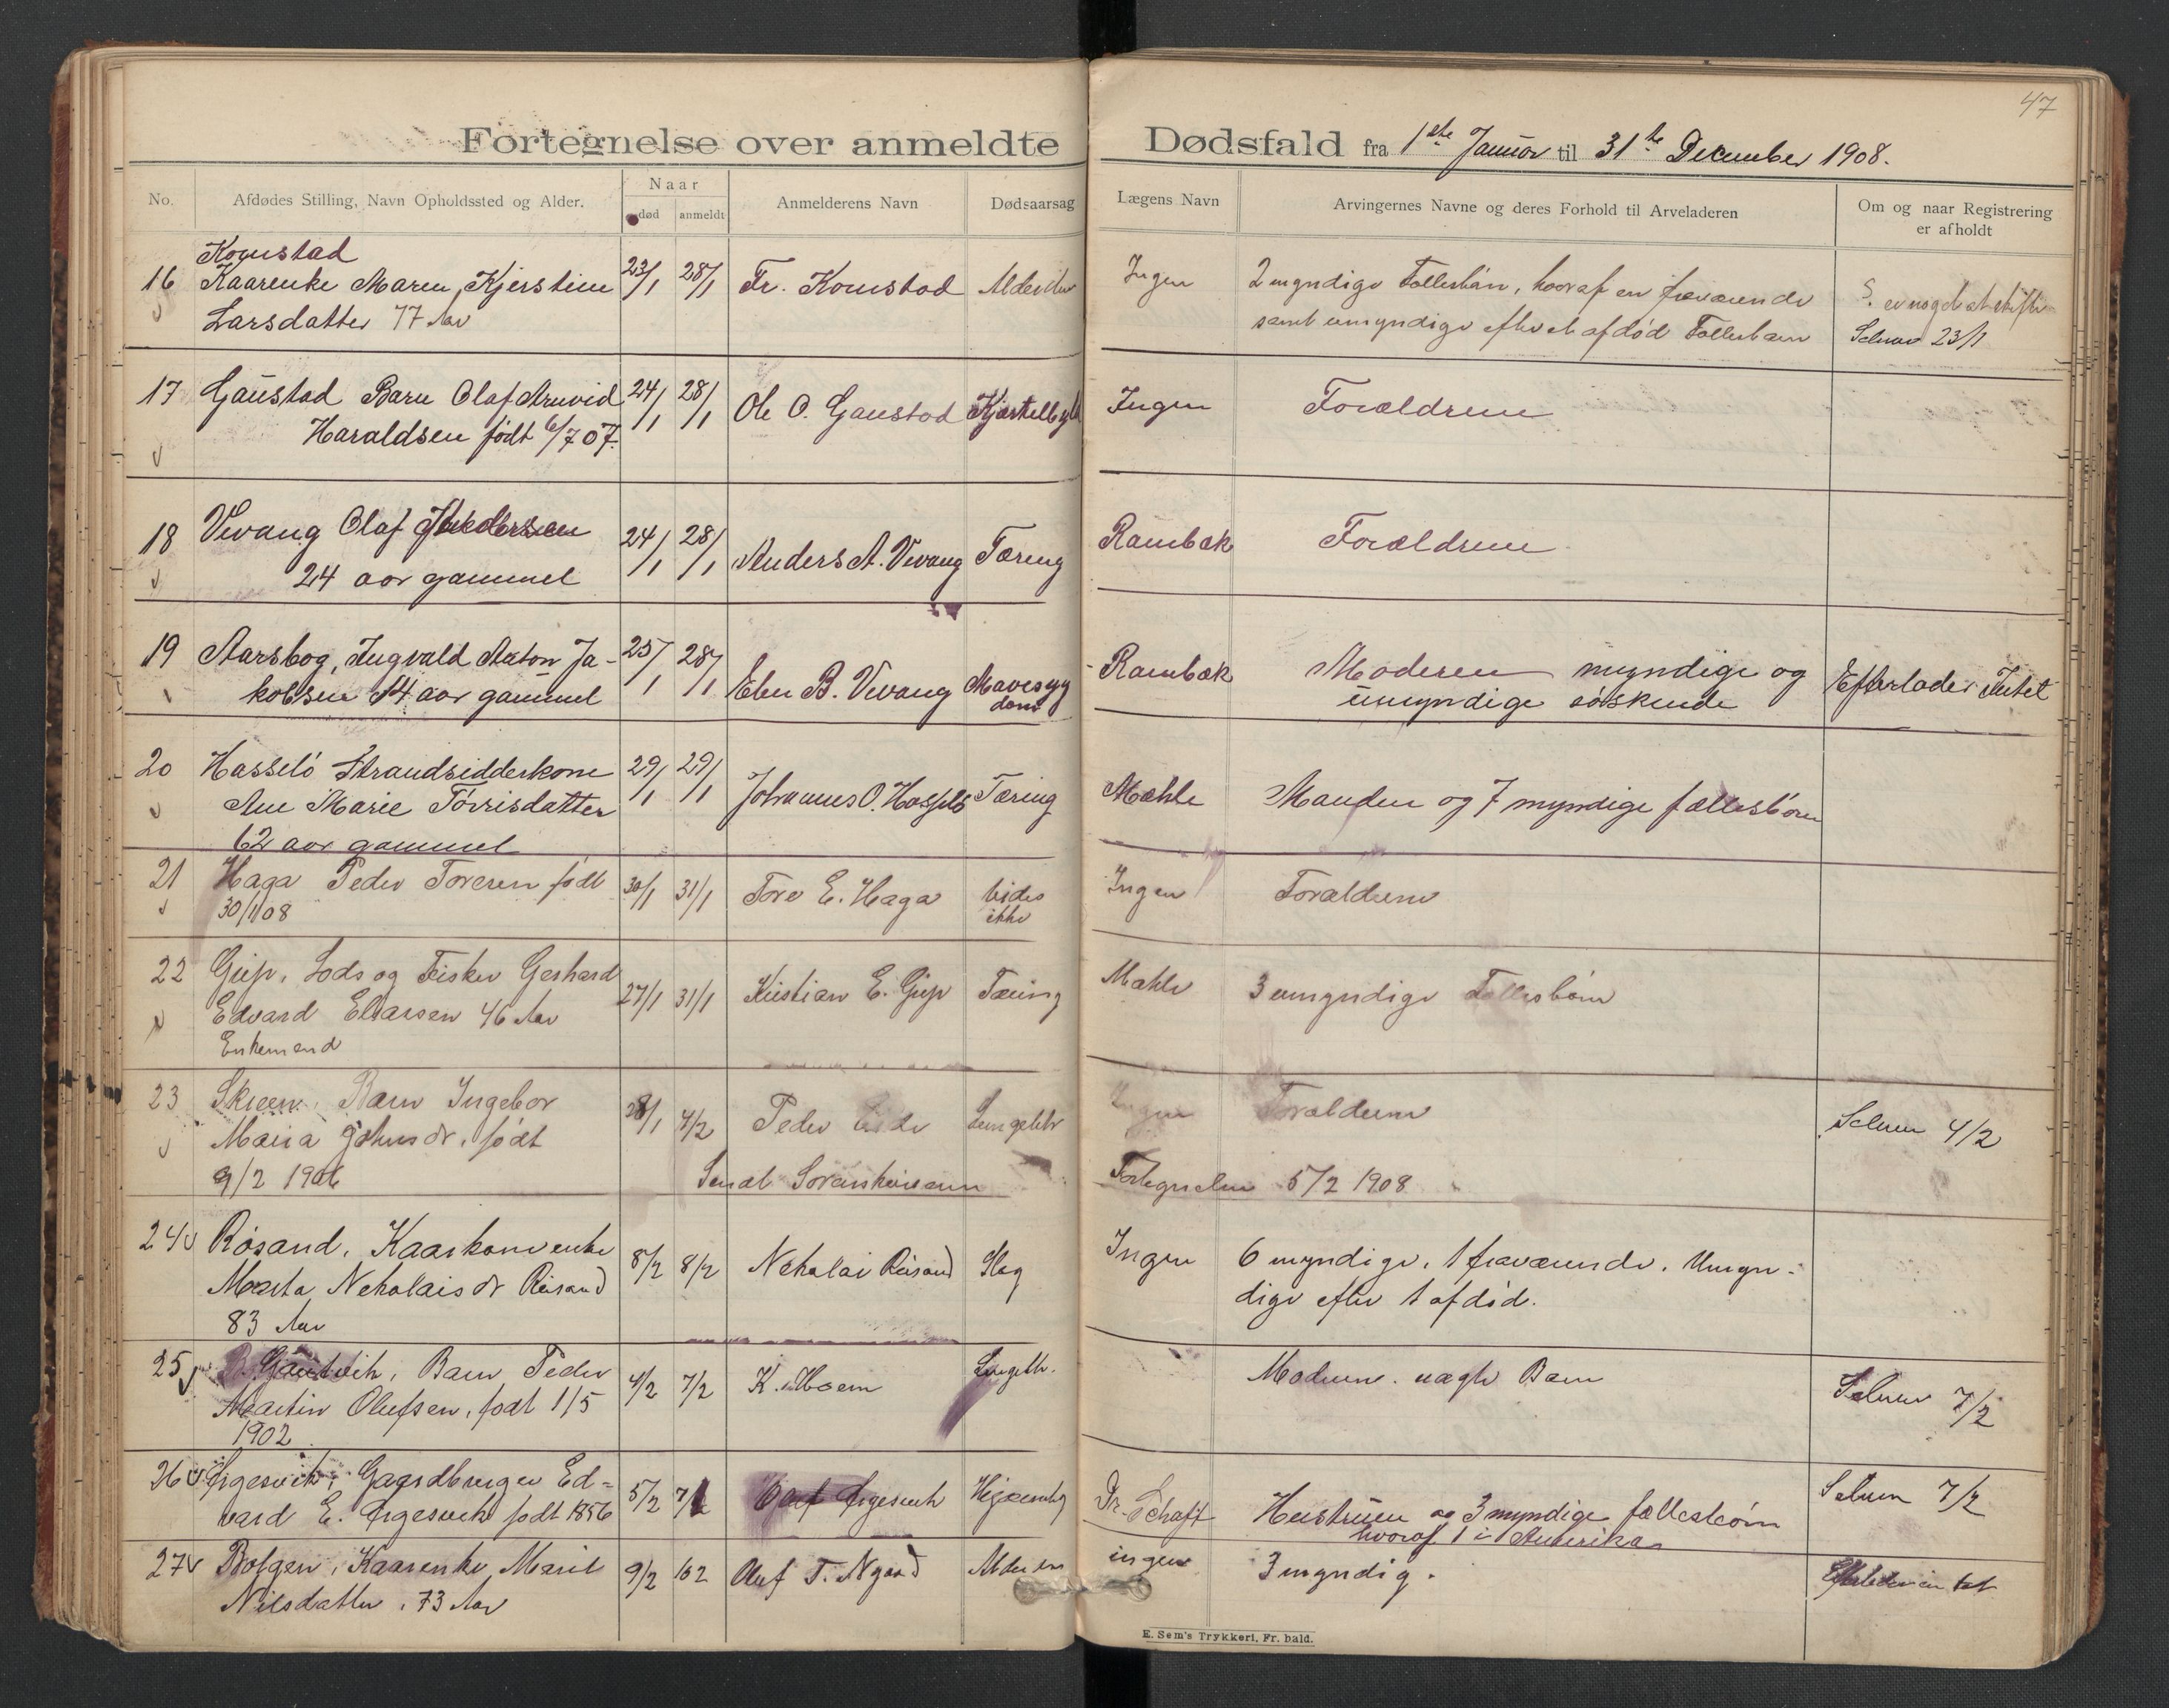 47
Fortegnelse over anmeldte Dødsfald fra 1ste Januar til 31te December 1908.
No.
Afdødes Stilling, Navn Opholdssted og Alder.
Naar
død
anmeldt
Anmelderens Navn
Dødsaarsag
Lægens Navn
Arvingernes Navne og deres Forhold til Arveladeren
Om og naar Registrering
er afholdt
Komstad
16 Kaarenke Maren Kjerstine 23/1 28/1 Fr. Komstad Ingen 2 myndige Fællesbørn, hvoraf en fraværende
Larsdatter 77 Aar samt umyndige efter et afdød Fællesbarn
23/1
17 Gaustad Barn Olaf Arnvid 24/1 28/1 Ole O. Gaustad Ingen Forældrene
Haraldsen født 6/7 07.
18 Vevang Olaf 24/1 28/1 Anders A. Vevang Tæring Rambæk Forældrene
24 aar gammel
19 Aarsbog, Ingvald Anton Ja- 25/1 28/1 Eben B. Vevang Mavesyg Rambæk Moderen myndige og Efterlader Intet
kobsen 14 aar gammel dom umyndige søskende
20 Hasselø Strandsidderkone 29/1 29/1 Johannes O. Hasselø Tæring Mæhle Manden og 7 myndige fællesbørn
Ane Marie Tørrisdatter
62 aar gammel
21 Haga Peder Toresen født 30/1 31/1 Tore E. Haga vides Ingen Forældrene
30/1 08 ikke
22 Grip, Lods og Fisker Gerhard 27/1 31/1 Kristian E. Grip Tæring Mæhle 3 umyndige Fællesbørn
Edvard Eliasen 46 Aar
Enkemand
23 Barn Ingebor 28/1 4/2 Peder Ingen Forældrene 4/2
Maria Johnsdr. født
9/2 1906 Sendt Sorenskriveren Fortegnelse 5/2 1908
24 Røsand, Kaarkone enke 8/2 8/2 Nekolai Røsand Slag Ingen 6 myndige, 1 fraværende. Umyn-
Marta Nekolaisdr Røsand dige efter 1 afdød.
83 Aar
25 Barn Peder 4/2 7/2 K. Hoem Moderen. uægte Barn 7/2
Martin Olufsen, født 1/5
1902
26 Ørgesvik, Gaardbruger Ed= 5/2 Ørgesvik Dr. Schaft Hustruen og 3 myndige fællesbørn 7/2
vard E. Ørgesvik født 1856 hvoraf 1 i Amerika
27 Bolgen, Kaarenke Marit 9/2 Oluf T. Nygaard ingen 3 myndig. Efterlader intet
Nilsdatter, 73 Aar
E. Sem's Trykkeri, Fr. hald.